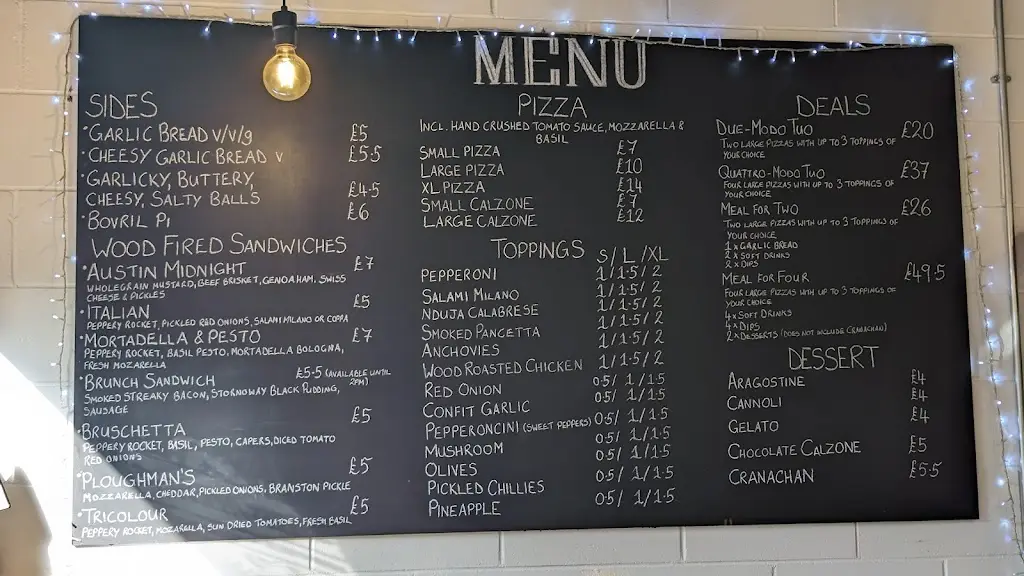 MENU
SIDES
·GARLIC BREAD V/V/g £5
·CHEESY GARLIC BREAD V £5.5
·GARLICKY, BUTTERY,
CHEESY, SALTY BALLS £4.5
·BOVRIL PI £6
WOOD FIRED SANDWICHES
·AUSTIN MIDNIGHT £7
WHOLEGRAIN MUSTARD, BEEF BRISKET, GENOA HAM, SWISS
CHEESE & PICKLES
·ITALIAN £5
PEPPERY ROCKET, PICKLED RED ONIONS, SALAMI MILANO OR COPPA
·MORTADELLA & PESTO £7
PEPPERY ROCKET, BASIL PESTO, MORTADELLA BOLOGNA,
FRESH MOZARELLA
·BRUNCH SANDWICH £5.5 (AVAILABLE UNTIL
2PM)
SMOKED STREAKY BACON, STORNOWAY BLACK PUDDING,
SAUSAGE
·BRUSCHETTA £5
PEPPERY ROCKET, BASIL, PESTO, CAPERS, DICED TOMATO
RED ONIONS
·PLOUGHMAN'S £5
MOZZARELLA, CHEDDAR, PICKLED ONIONS, BRANSTON PICKLE
·TRICOLOUR £5
PEPPERY ROCKET, MOZARELLA, SUN DRIED TOMATOES, FRESH BASIL
PIZZA
INCL. HAND CRUSHED TOMATO SAUCE, MOZZARELLA &
BASIL
SMALL PIZZA £7
LARGE PIZZA £10
XL PIZZA £14
SMALL CALZONE £7
LARGE CALZONE £12
TOPPINGS S/L/XL
PEPPERONI 1/1.5/2
SALAMI MILANO 1/1.5/2
NDUJA CALABRESE 1/1.5/2
SMOKED PANCETTA 1/1.5/2
ANCHOVIES 1/1.5/2
WOOD ROASTED CHICKEN 1/1.5/2
RED ONION 0.5/1/1.5
CONFIT GARLIC 0.5/1/1.5
PEPPERONCINI (SWEET PEPPERS) 0.5/1/1.5
MUSHROOM 0.5/1/1.5
OLIVES 0.5/1/1.5
PICKLED CHILLIES 0.5/1/1.5
PINEAPPLE 0.5/1/1.5
DEALS
DUE-MODO TUO £20
TWO LARGE PIZZAS WITH UP TO 3 TOPPINGS OF
YOUR CHOICE
QUATTRO-MODO TUO £37
FOUR LARGE PIZZAS WITH UP TO 3 TOPPINGS OF
YOUR CHOICE
MEAL FOR TWO £26
TWO LARGE PIZZAS WITH UP TO 3 TOPPINGS OF
YOUR CHOICE
1 x GARLIC BREAD
2 x SOFT DRINKS
2 x DIPS
MEAL FOR FOUR £49.5
FOUR LARGE PIZZAS WITH UP TO 3 TOPPINGS OF
YOUR CHOICE
4 x SOFT DRINKS
4 x DIPS
2 x DESSERTS (DOES NOT INCLUDE CRANACHAN)
DESSERT
ARAGOSTINE £4
CANNOLI £4
GELATO £4
CHOCOLATE CALZONE £5
CRANACHAN £5.5